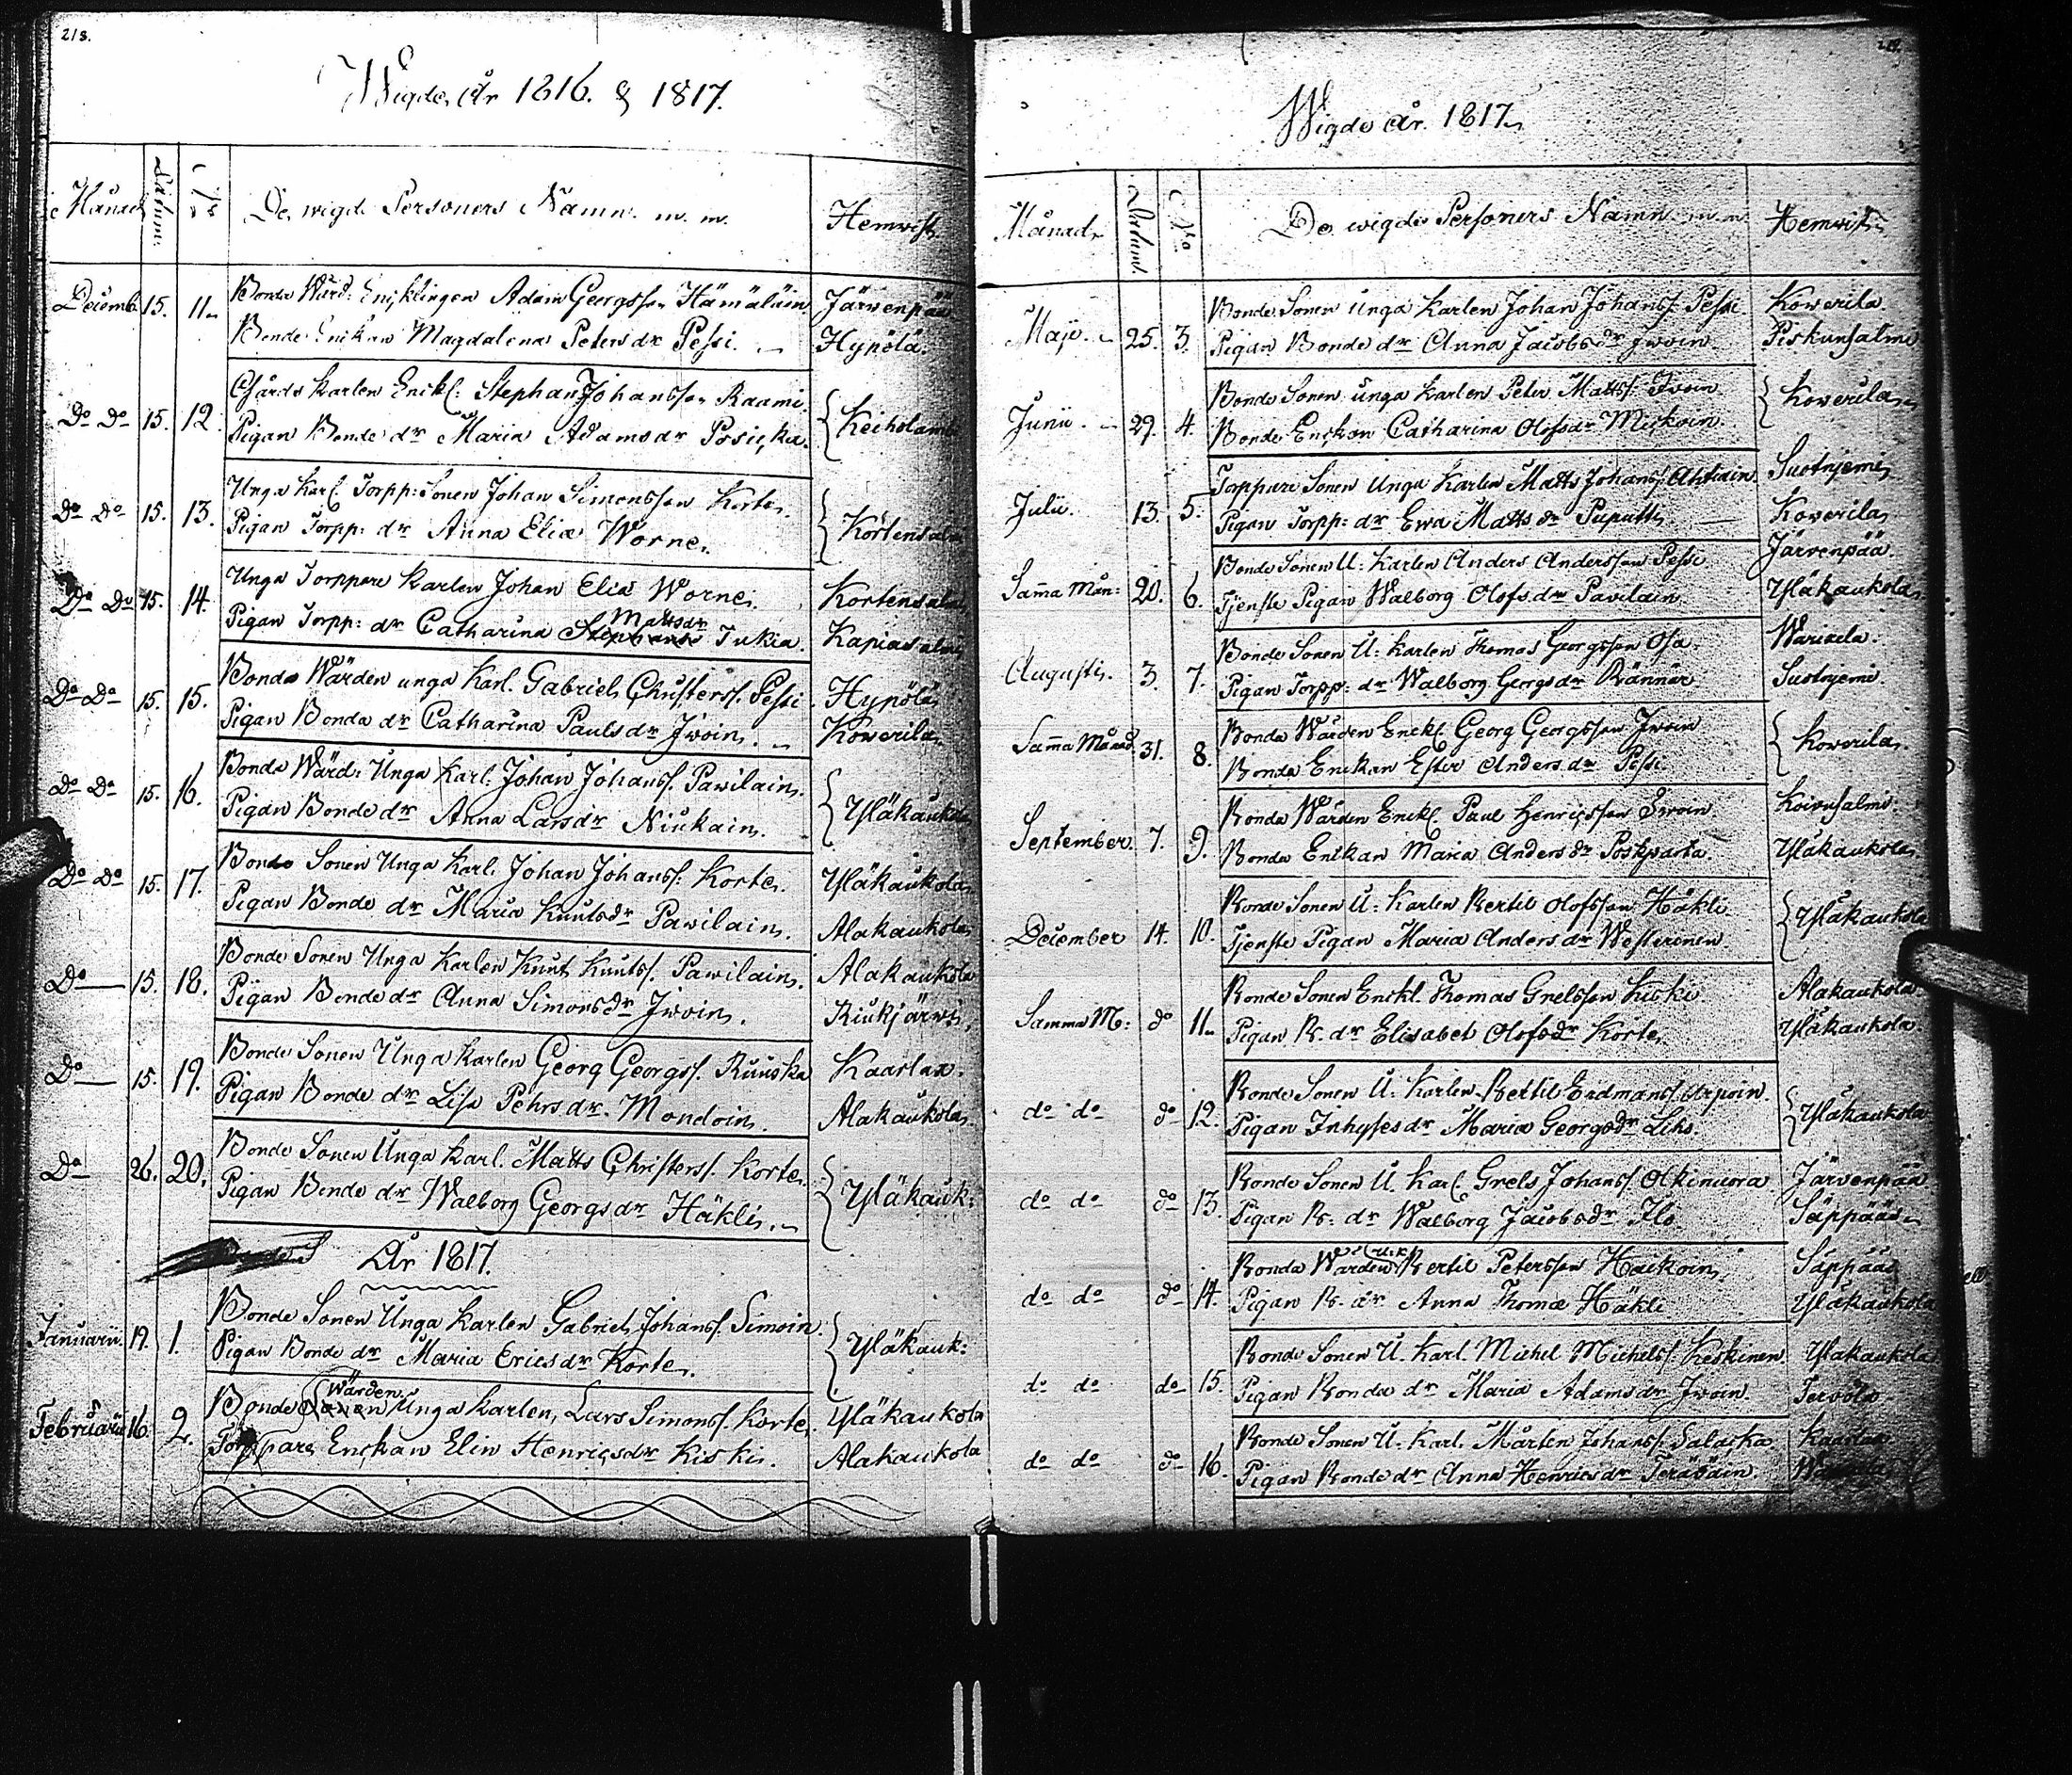 218.
Wigde år 1816. & 1817.
Månad Datum. No De wigde Personers Namn m. m. Hemwist
Decemb 15. 11. Bonde Wärd: Enkklingen Adam Georgsson Hämäläin Järwenpää
Bonde Enkan Magdalena Petersdr Pessi. Hypölä.
Do Do 15. 12. Gårds Karlen Enckl: Stephan Johansson Raami.
Pigan Bonde dr Maria Adamsdr Posicka. Keiholamb
Do Do 15. 13. Unga Karl. Torpp: Sonen Johan Simonsson Korte.
Pigan Torpp: dr Anna Eliæ Worne. Kortensalm
Do Do 15. 14. Unga Torppare Karlen Johan Eliæ Worne. Kortensalmi
Mattsdr
Pigan Torpp: dr Catharina Stephansdr Tukia. Kapiasalmi
Do Do 15. 15. Bonde Wärden unga Karl. Gabriel Christerss. Pessi Hypölä
Pigan Bonde dr Catharina Paulsdr Iwoin. Kowerila
Do Do 15. 16. Bonde Wärd: Unga Karl. Johan Johanss. Pawilain.
Pigan Bonde dr Anna Larsdr Niukain. Yläkaukola
Do Do 15. 17. Bonde Sonen Unga Karl. Johan Johanss: Korte. Yläkaukola
Pigan Bonde dr Maria Knutsdr Pawilain. Alakaukola
Do 15. 18. Bonde Sonen Unga Karlen Knut Knutss. Pawilain. Alakaukola
Pigan Bonde dr Anna Simonsdr Iwoin. Riukjärwi
Do 15. 19. Bonde Sonen Unga Karlen Georg Georgss. Ruuska Kaarlax.
Pigan Bonde dr Lisa Pehrsdr. Mondoin. Alakaukola.
Do 26. 20. Bonde Sonen Unga Karl. Matts Christerss. Korte.
Pigan Bonde dr Walborg Georgsdr Häkli. Yläkauk:
År 1817.
Januarii. 19. 1. Bonde Sonen Unga Karlen Gabriel Johanss. Simoin.
Pigan Bonde dr Maria Ericsdr Korte. Yläkauk:
Wärden
Februarii 16. 2. Bonde Sonen Unga Karlen, Lars Simonss. Korte. Yläkaukola
Torppare Enckan Elin Henricsdr Kiski. Alakaukola
Wigde år. 1817.
Månad. Datum. No De wigde Personers Namn m. m. Hemwist
Maji. 25. 3. Bonde Sonen Unga Karlen Johan Johanss. Pessi Kowerila
Pigan Bonde dr Anna Jacobsdr Iwoin. Piskunsalmi
Junii. 29. 4. Bonde Sonen unga Karlen Peter Mattss. Iwoin
Bonde Enckan Catharina Olofsdr Mickoin. Kowerila
Julii. 13. 5. Torppare Sonen Unga Karlen Matts Johanss. Ahtiain. Suotnjemi
Pigan Torpp: dr Ewa Matts dr Puputti Kowerila
Samma Mån: 20. 6. Bonde Sonen U: Karlen Anders Andersson Pessi Järvenpää.
Tjenste Pigan Walborg Olofsdr Pavilain Yläkaukola
Augusti. 3. 7. Bonde Sonen U: Karlen Thomas Georgsson Osa
Pigan Torpp: dr Walborg Georgsdr Rännär Suotnjemi
Samma Månad. 31. 8. Bonde Wärden Enckl. Georg Georgsson Iwoin
Bonde Enckan Ester Anders dr Pessi Kowerila
September. 7. 9. Bonde Wärden Enckl. Paul Henricsson Iwoin Koivusalmi.
Bonde Enckan Maria Anders dr Poskiparta Yläkaukola
December 14. 10. Bonde Sonen U: Karlen Bertil Olofsson Häkli
Tjenste Pigan Maria Anders dr Westerinen Yläkaukola
Samma M: do 11. Bonde Sonen Enckl. Thomas Grelsson Kiski Alakaukola
Pigan B. dr Elisabet Olofsdr Korte Yläkaukola
do do do 12. Bonde Sonen U: Karlen Bertil Erdmanss. Arpoin.
Pigan Inhyses dr Maria Georgsdr Liho. Yläkaukola
do do do 13. Bonde Sonen U. Karl. Grels Johanss Olkinuora Järvenpää
Pigan B: dr Walborg Jacobsdr Ilo Säppääs
do do do 14. Bonde Wärden Bertil Petersson Haikoin Säppää
Pigan B. dr Anna Thomæ Häkli Yläkaukola
do do do 15. Bonde Sonen U. Karl. Michel Michelss. Keskinen Yläkaukola
Pigan Bonde dr Maria Adamsdr Iwoin. Tervola
do do do 16. Bonde Sonen U. Karl. Mårten Johanss. Salacka Kaarlax
Pigan Bonde dr Anna Henricsdr Teräväin